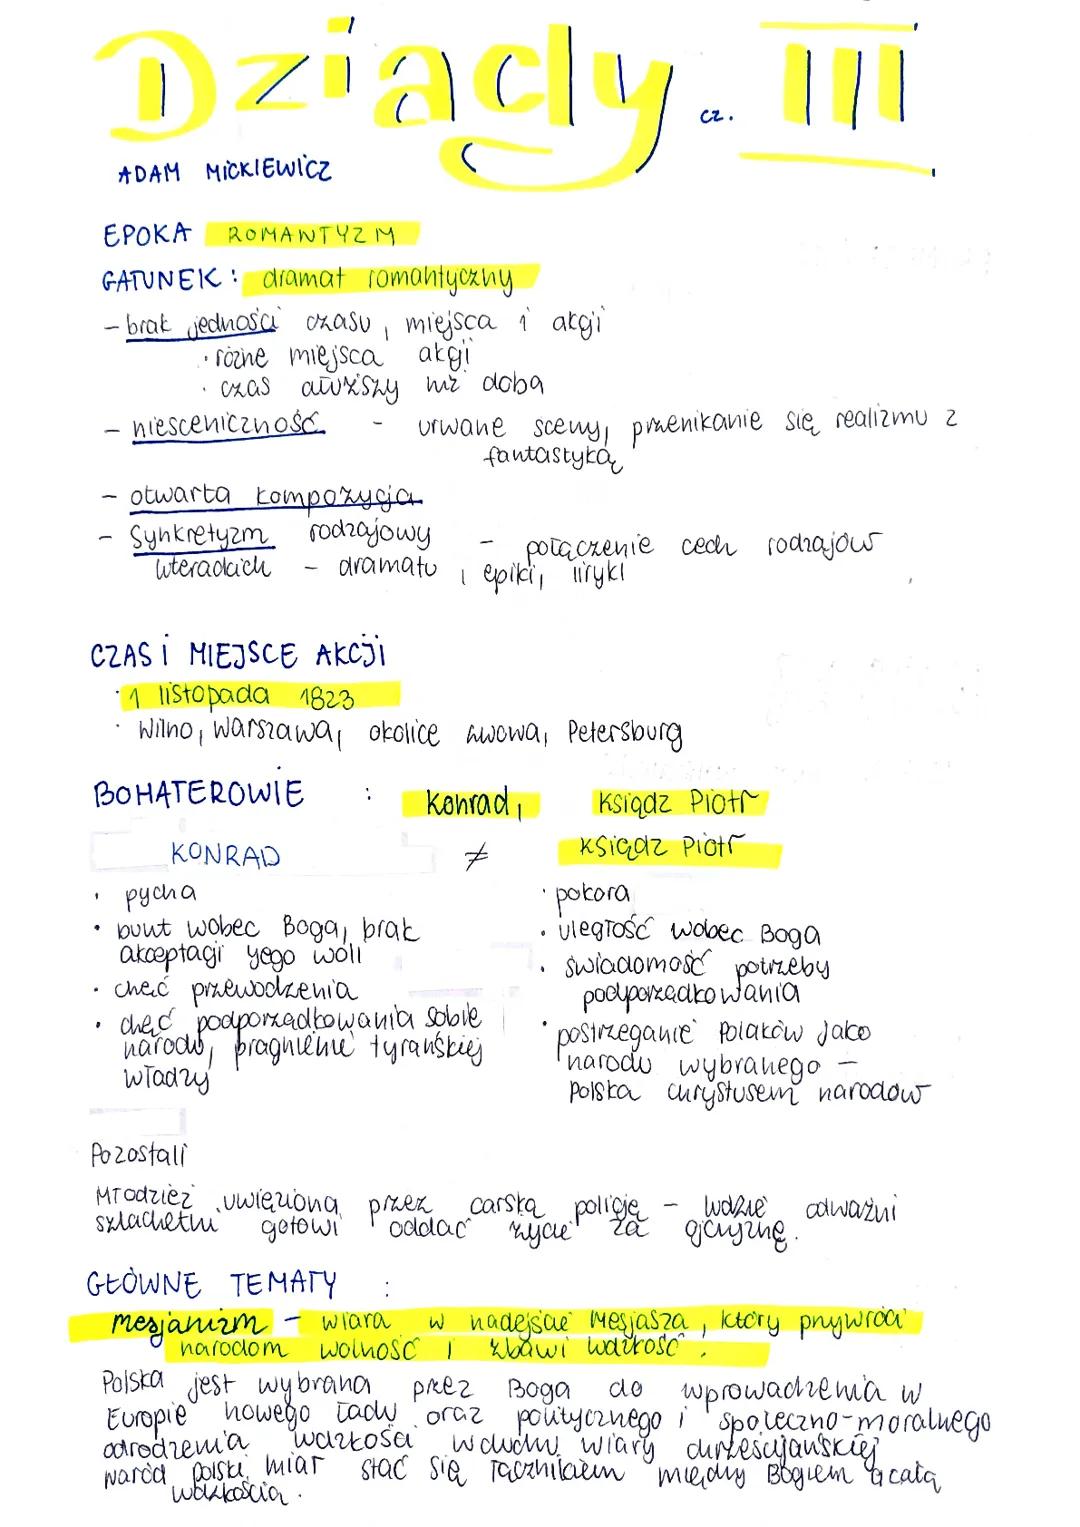 Dziady cz. III
ADAM MICKIEWICZ
EPOKA ROMANTYZM
GATUNEK: dramat romantyczny
- brak jedności czasu, miejsca i akcji
· różne miejsca akcji
· czas dłuższy niż doba
- niesceniczność - urwane sceny, przenikanie się realizmu z
fantastyką
- otwarta kompozycja
- Synkretyzm rodzajowy - połączenie cech rodzajów
literackich - dramatu, epiki, liryki
CZAS i MIEJSCE AKCJI
· 1 listopada 1823
· Wilno, Warszawa, okolice Lwowa, Petersburg
BOHATEROWIE : Konrad, Ksiądz Piotr
KONRAD ≠ Ksiądz Piotr
· pycha
· bunt wobec Boga, brak
akceptacji jego woli
· chęć przewodzenia
· chęć podporządkowania sobie
narodu, pragnienie tyrańskiej
władzy
· pokora
· uległość wobec Boga
· świadomość potrzeby
podporządkowania
· postrzeganie Polaków jako
narodu wybranego -
Polska Chrystusem narodów
Pozostali
Młodzież uwięziona przez carską policję - ludzie odważni
szlachetni gotowi oddać życie za ojczyznę.
GŁÓWNE TEMATY :
mesjanizm - wiara w nadejście Mesjasza, który przywróci
narodom wolność i zbawi ludzkość.
Polska jest wybrana przez Boga do wprowadzenia w
Europie nowego ładu oraz politycznego i społeczno-moralnego
odrodzenia ludzkości w duchu wiary chrześcijańskiej
naród polski miał stać się łącznikiem między Bogiem a całą
ludzkością.